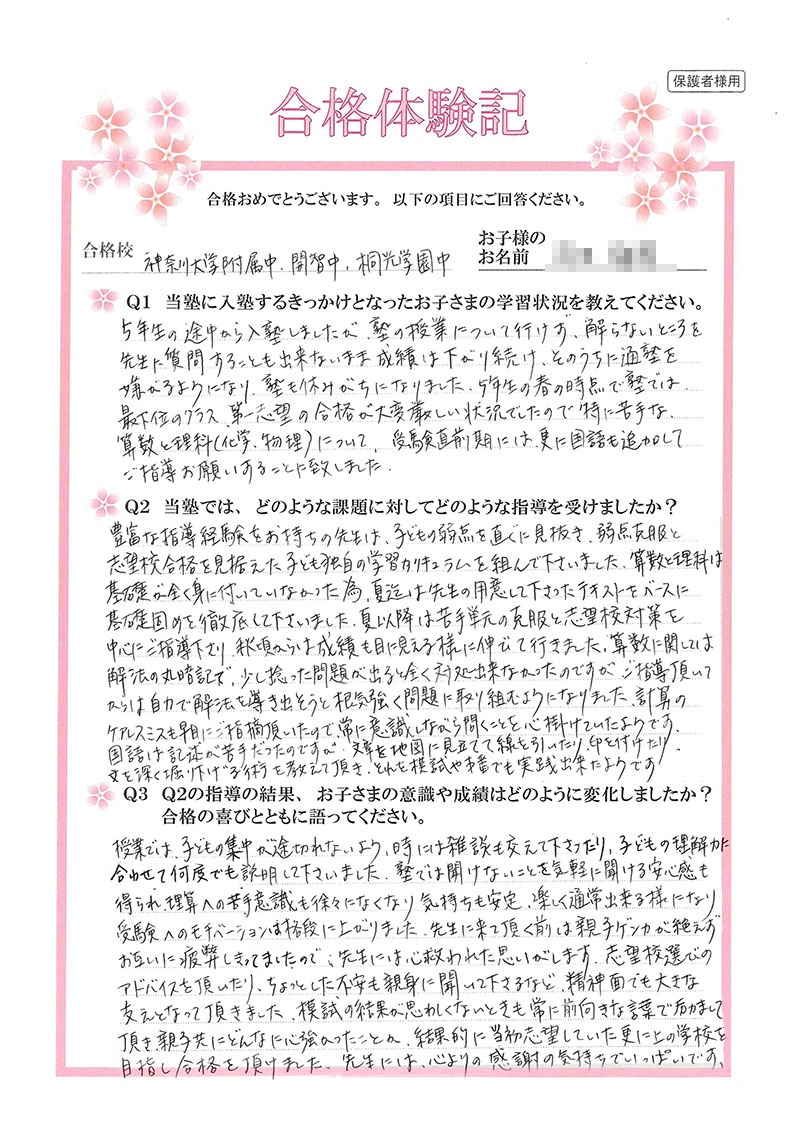 保護者様用
合格体験記
合格おめでとうございます。以下の項目にご回答ください。
合格校 神奈川大学附属中、開智中、桐光学園中
お子様の
お名前
Q1 当塾に入塾するきっかけとなったお子さまの学習状況を教えてください。
5年生の途中から入塾しましたが、塾の授業について行けず、解らないところを
先生に質問することも出来ないまま成績は下がり続け、そのうちに通塾を
嫌がるようになり、塾も休みがちになりました。5年生の春の時点で塾では
最下位のクラス、第一志望の合格が大変厳しい状況でしたので特に苦手な
算数と理科(化学、物理)について、受験直前期には更に国語も追加して
ご指導お願いすることに致しました。
Q2 当塾では、どのような課題に対してどのような指導を受けましたか?
豊富な指導経験をお持ちの先生は、子どもの弱点を直ぐに見抜き、弱点克服と
志望校合格を見据えた子ども独自の学習カリキュラムを組んで下さいました。算数と理科は
基礎が全く身に付いていなかった為、夏迄は先生の用意して下さったテキストをベースに
基礎固めを徹底して下さいました。夏以降は苦手単元の克服と志望校対策を
中心にご指導下さり、秋頃からは成績も目に見える様に伸びて行きました。算数に関しては
解法の丸暗記で、少し捻った問題が出ると全く対処出来なかったのですが、ご指導頂いて
からは自力で解法を導き出そうと根気強く問題に取り組むようになりました。計算の
ケアレスミスも早目にご指摘頂いたので、常に意識しながら問くことを心掛けていたようです。
国語は記述が苦手だったのですが、文章を地図に見立てて線を引いたり、印を付けたり、
文を深く堀り下げる術を教えて頂き、それを模試や本番でも実践出来たようです
Q3 Q2の指導の結果、お子さまの意識や成績はどのように変化しましたか?
合格の喜びとともに語ってください。
授業では、子どもの集中が途切れないよう、時には雑談も交えて下さったり、子どもの理解力に
合わせて何度でも説明して下さいました。塾では聞けないことを気軽に聞ける安心感も
得られ、理算への苦手意識も徐々になくなり気持ちも安定、楽しく通常出来る様になり
受験へのモチベーションは格段に上がりました。先生に来て頂く前は親子ゲンカが絶えず
お互いに疲弊しきってましたので、先生には心救われた思いがします。志望校選びの
アドバイスを頂いたり、ちょっとした不安も親身に聞いて下さるなど、精神面でも大きな
支えとなって頂きました。模試の結果が思わしくないときも常に前向きな言葉で励まして
頂き親子共にどんなに心強かったことか。結果的に当初志望していた更に上の学校を
目指し合格を頂けました。先生には、心よりの感謝の気持ちでいっぱいです。